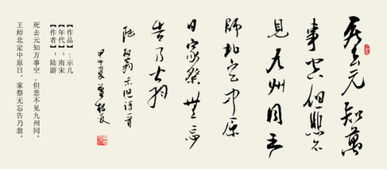 死去元知萬
事空但悲不
見九州同王
師北定中原
日家祭無忘
告乃翁
陸放翁示児詩一首
甲午夏
【作品】：示儿
【年代】：南宋
【作者】：陆游
死去元知万事空，但悲不见九州同。
王师北定中原日，家祭无忘告乃翁。